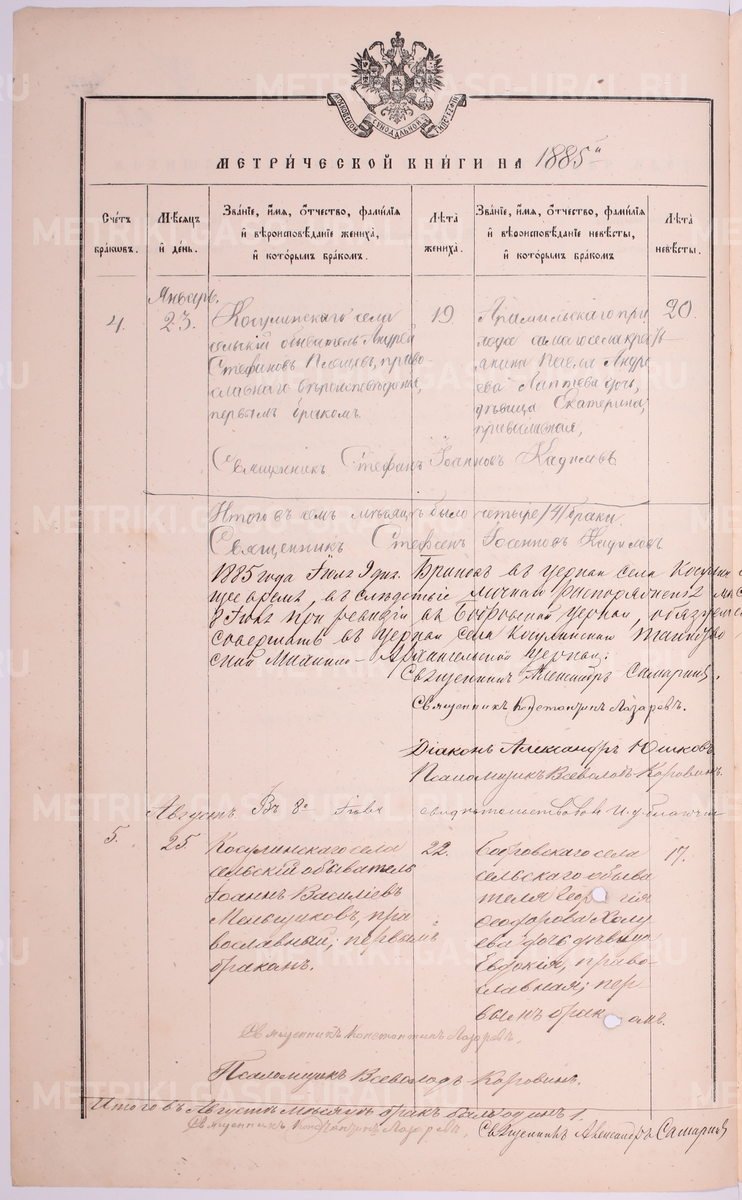 МЕТРИ́ЧЕСКОЙ КНИ́ГИ НА 1885й
Сче́тъ бра́ковъ.
Мѣ́сяцъ и҆ де́нь.
Зва́нїе, и҆́мя, ѻ҆́тчество, фами́лїѧ и҆ вѣроисповѣ́данїе жениха̀, и҆ кото́рымъ бра́комъ.
Лѣ́та жениха̀.
Зва́нїе, и҆́мя, ѻ҆́тчество, фами́лїѧ и҆ вѣроисповѣ́данїе невѣ́сты, и҆ кото́рымъ бра́комъ
Лѣ́та невѣ́сты.
Январь.
4.
23.
Косулинскаго села
сельскій обыватель Андрей
Стефановъ Плещевъ, право-
славнаго вѣроисповѣданія,
первымъ бракомъ.
19
Арамильскаго при-
хода села кресть-
янина Павла Андре-
ева Лаптева дочь,
дѣвица Екатерина,
православная,
20.
Священникъ Стефанъ Іоанновъ Кадиловъ
Итого въ семъ мѣсяцѣ было четыре /4/ брака.
Священникъ Стефанъ Іоанновъ Кадиловъ
1885 года Іюля 9 дня. Браковъ въ церкви села
щее время, въ слѣдствіе личнаго распоряженія
8 Іюля при ревизіи въ Бобровской церкви,
совершать въ церкви села Косулинскаго
Михаило-Архангельской церкви:
Священникъ Александръ Самаринъ.
Священникъ Константинъ Лазаревъ.
Діаконъ Александръ Юшковъ
Псаломщикъ Всеволодъ Коровинъ.
Августъ. Въ 8е Іюля свидѣтельствовалъ И. д. благочи
5.
25.
Косулинскаго села
сельскій обыватель
Іоаннъ Василіевъ
Меньщиковъ, пра-
вославный; первымъ
бракомъ.
22.
Бобровскаго села
сельскаго обыва-
теля Георгія
Ѳеодорова
ева дочь дѣвица
Евдокія, право-
славная; пер-
вымъ бракомъ.
17.
Священникъ Константинъ Лазаревъ.
Псаломщикъ Всеволодъ Коровинъ.
Итого въ Августѣ мѣсяцѣ бракъ былъ одинъ 1.
Священникъ Константинъ Лазаревъ. Священникъ Александръ Самаринъ
METRIKI.GASO-URAL.RU